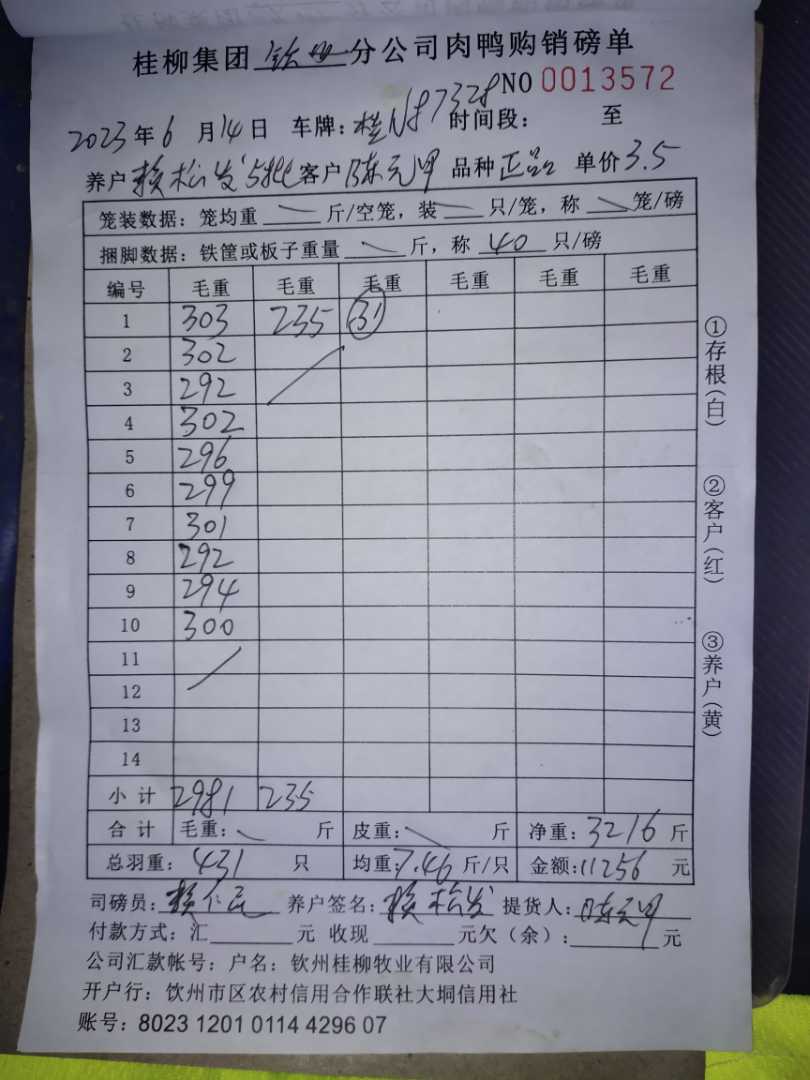 桂柳集团 钦州 分公司肉鸭购销磅单
NO 0013572
2023年6月14日 车牌：桂N87328 时间段： 至
养户 赖松发 5批 客户 陈元甲 品种 正品 单价 3.5
笼装数据：笼均重 斤/空笼，装 只/笼，称 笼/磅
捆脚数据：铁筐或板子重量 斤，称 40 只/磅
编号 毛重 毛重 毛重 毛重 毛重 毛重
1 303 235 31
2 302
3 292
4 302
5 296
6 299
7 301
8 292
9 294
10 300
11
12
13
14
小计 2981 235
合计 毛重： 斤 皮重： 斤 净重：3216 斤
总羽重：431 只 均重：7.46 斤/只 金额：11256 元
司磅员： 养户签名：赖松发 提货人：陈元甲
付款方式：汇 元 收现 元欠（余）： 元
公司汇款帐号：户名：钦州桂柳牧业有限公司
开户行：饮州市区农村信用合作联社大垌信用社
账号：8023 1201 0114 4296 07
①存根（白）
②客户（红）
③养户（黄）